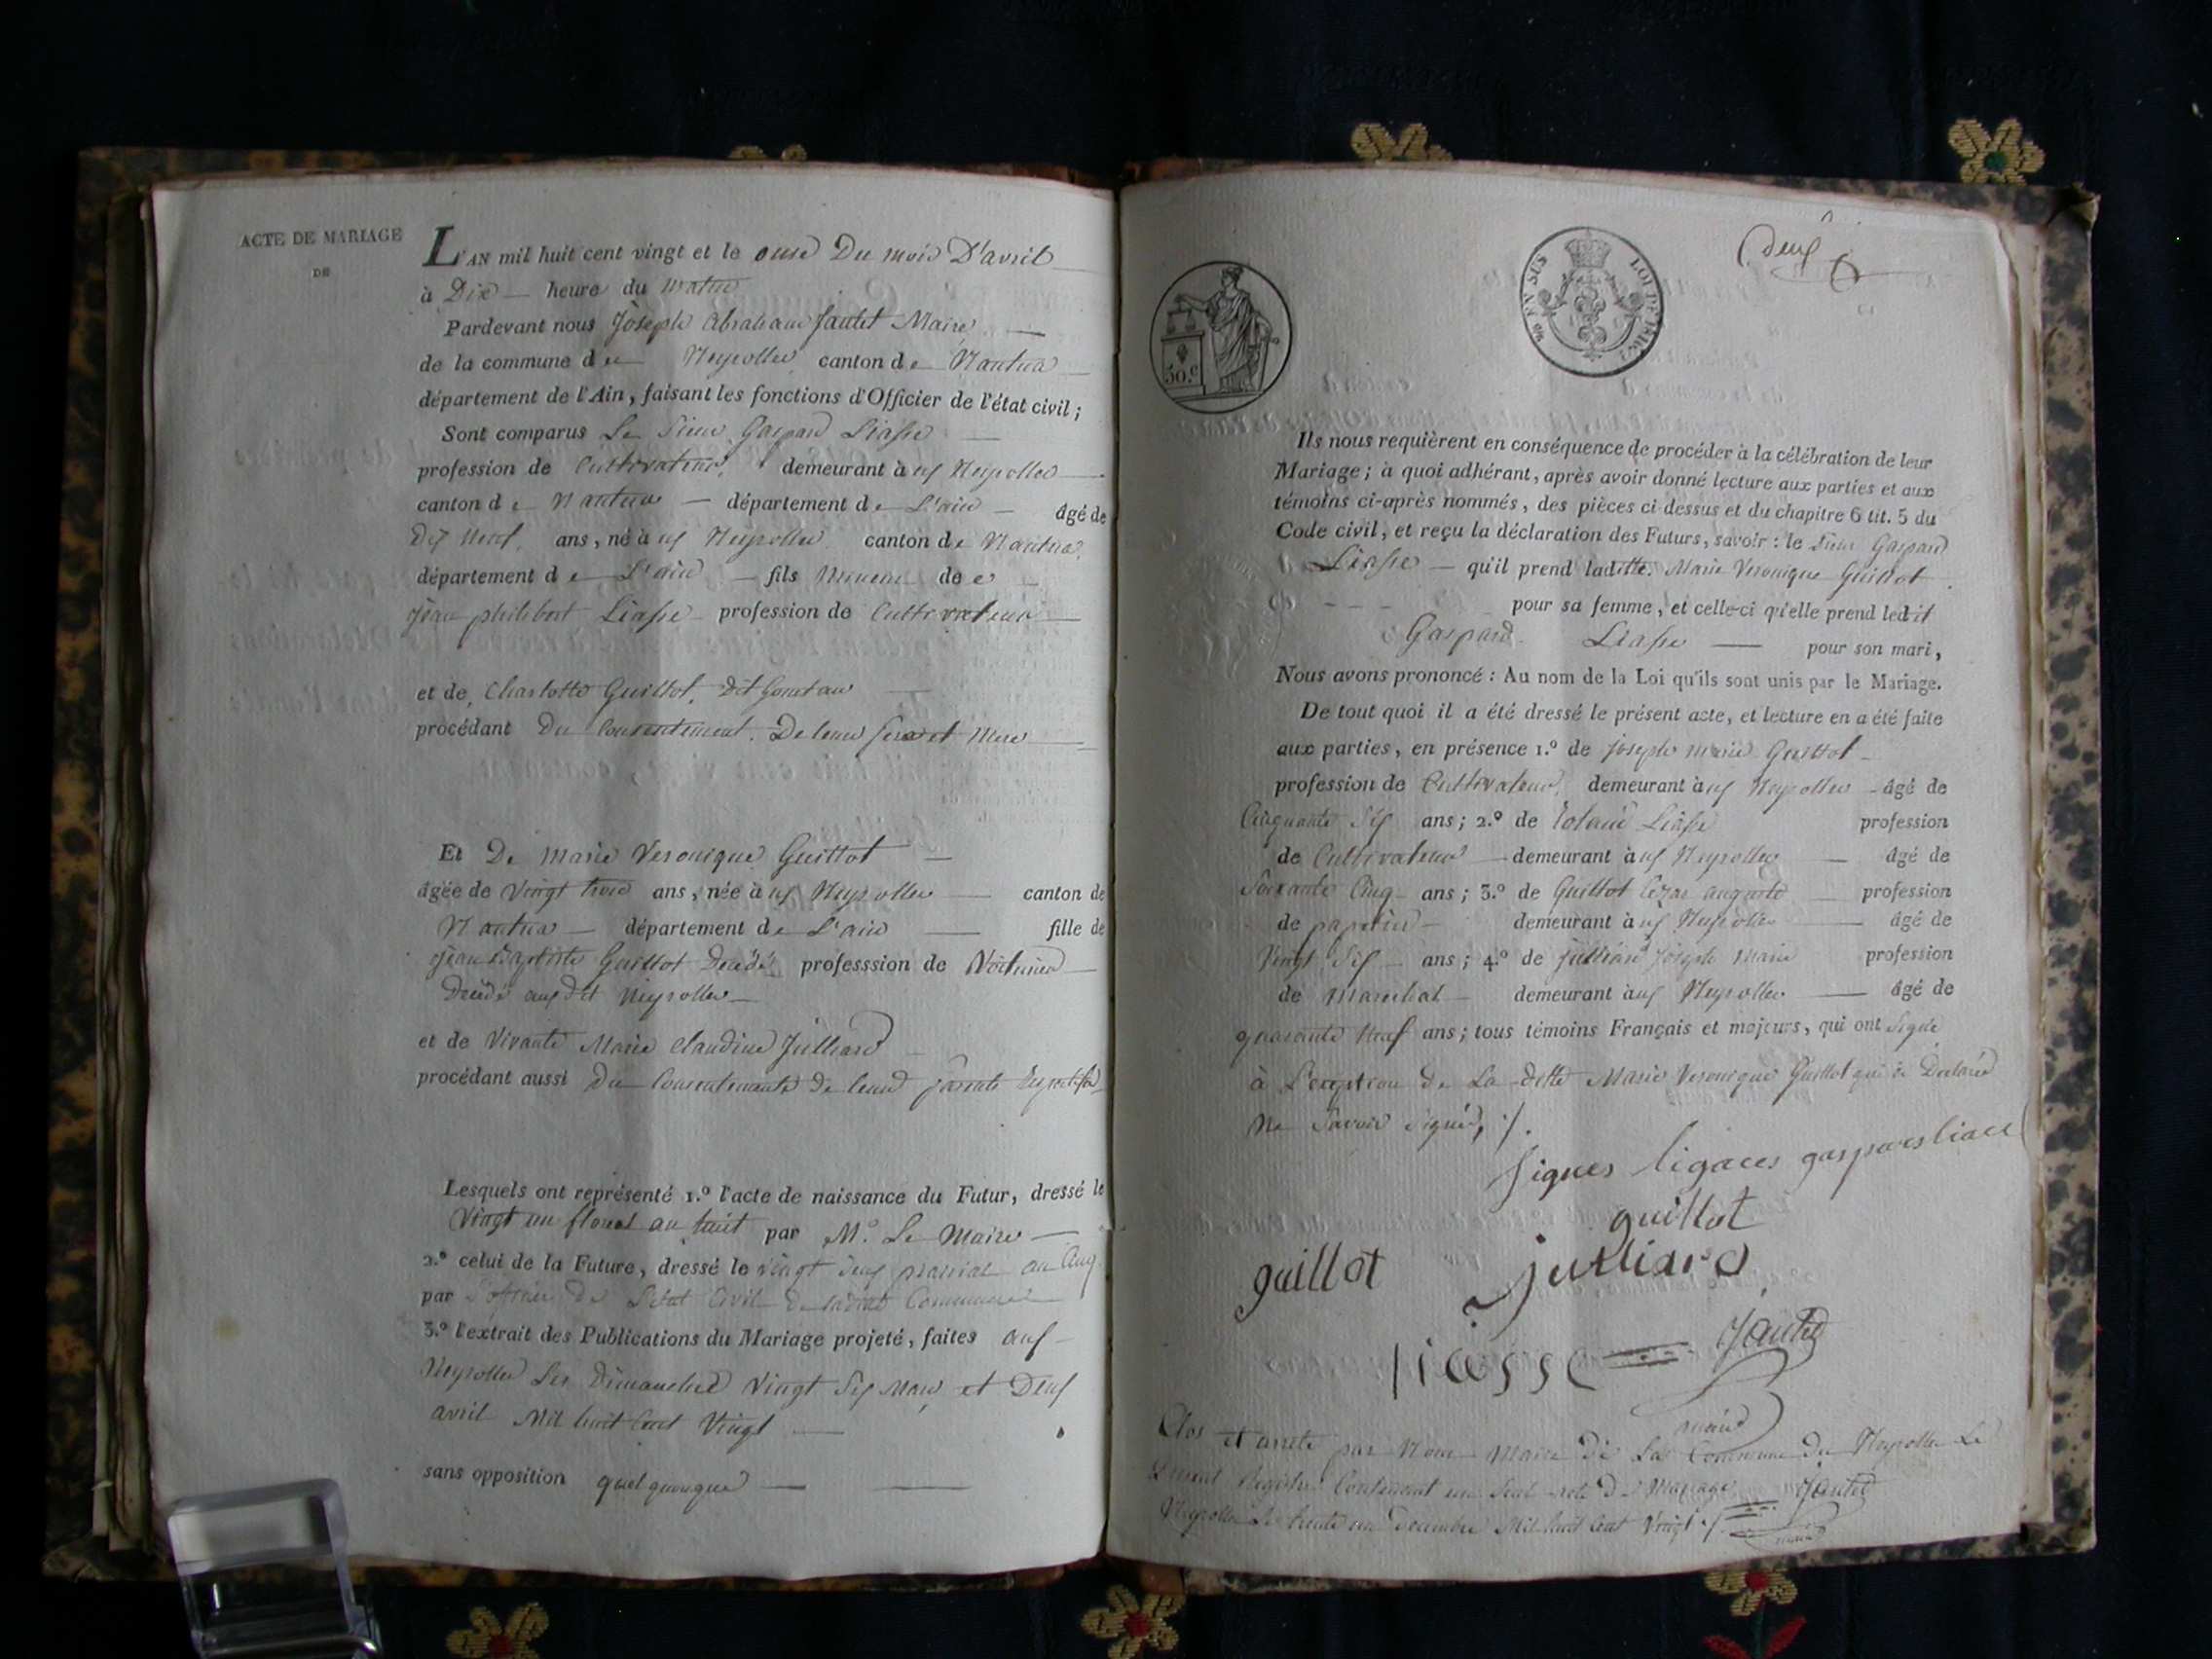 ACTE DE MARIAGE
DE
L'AN mil huit cent vingt et le onse Du mois D'avril
à Dix heure du matin
Pardevant nous Joseph Abraham Jantet Maire
de la commune de Neyrolles canton de Nantua
département de l'Ain, faisant les fonctions d'Officier de l'état civil;
Sont comparus Le Sieur Gaspard Liasse
profession de Cultivateur demeurant à ux Neyrolles
canton de Nantua département de L'ain âgé de
Dix Neuf ans, né à ux Neyrolles canton de Nantua
département de L'ain fils Mineur de
jean philibert Liasse profession de Cultivateur
et de Charlotte Guillot, dit
procédant Du Consentement De leurs pere et Mere
Et De Marie Veronique Guillot
âgée de Vingt trois ans, née à ux Neyrolles canton de
Nantua département de L'ain fille de
jean Baptiste Guillot Décédé professsion de Voiturier
Décédé aux dit Neyrolles
et de Vivante Marie Claudine Julliard
procédant aussi Du de leurs parents
Lesquels ont représenté 1.º l'acte de naissance du Futur, dressé le
Vingt un floreal an huit par M.r Le Maire
2.º celui de la Future, dressé le vingt deux prairial an Cinq
par L'officier De L'état Civil De ladite Commune
3.º l'extrait des Publications du Mariage projeté, faites aux
Neyrolles Les Dimanches Vingt Six Mars et Deux
avril Mil huit Cent Vingt
sans opposition quelquonque
deux
30.C
LOI DE 1816
Ils nous requièrent en conséquence de procéder à la célébration de leur
Mariage; à quoi adhérant, après avoir donné lecture aux parties et aux
témoins ci-après nommés, des pièces ci dessus et du chapitre 6 tit. 5 du
Code civil, et reçu la déclaration des Futurs, savoir: le Sieur Gaspard
Liasse qu'il prend ladite Marie Veronique Guillot
pour sa femme, et celle-ci qu'elle prend ledit
Gaspard Liasse pour son mari,
Nous avons prononcé: Au nom de la Loi qu'ils sont unis par le Mariage.
De tout quoi il a été dressé le présent acte, et lecture en a été faite
aux parties, en présence 1.º de joseph marie Guillot
profession de Cultivateur demeurant à ux Neyrolles âgé de
Cinquante Six ans; 2.º de Liasse profession
de Cultivateur demeurant à ux Neyrolles âgé de
Soixante Cinq ans; 3.º de Guillot Cezar auguste profession
de papetier demeurant à ux Neyrolles âgé de
Vingt Six ans; 4.º de julliard joseph Marie profession
de Marechal demeurant à ux Neyrolles âgé de
quarante Neuf ans; tous témoins Français et majeurs, qui ont signé
à L'exeption De La ditte Marie Veronique Guillot qui a Déclaré
Ne Savoir Signer,
gaspard liace
guillot
guillot julliard
liasse Jantet
maire
Clos et arreté par Nous Maire De La Commune De Neyrolles Le
présent Registre Contenant un Seul acte De Mariage Jantet
Neyrolles Le trente un Decembre Mil huit Cent Vingt
maire